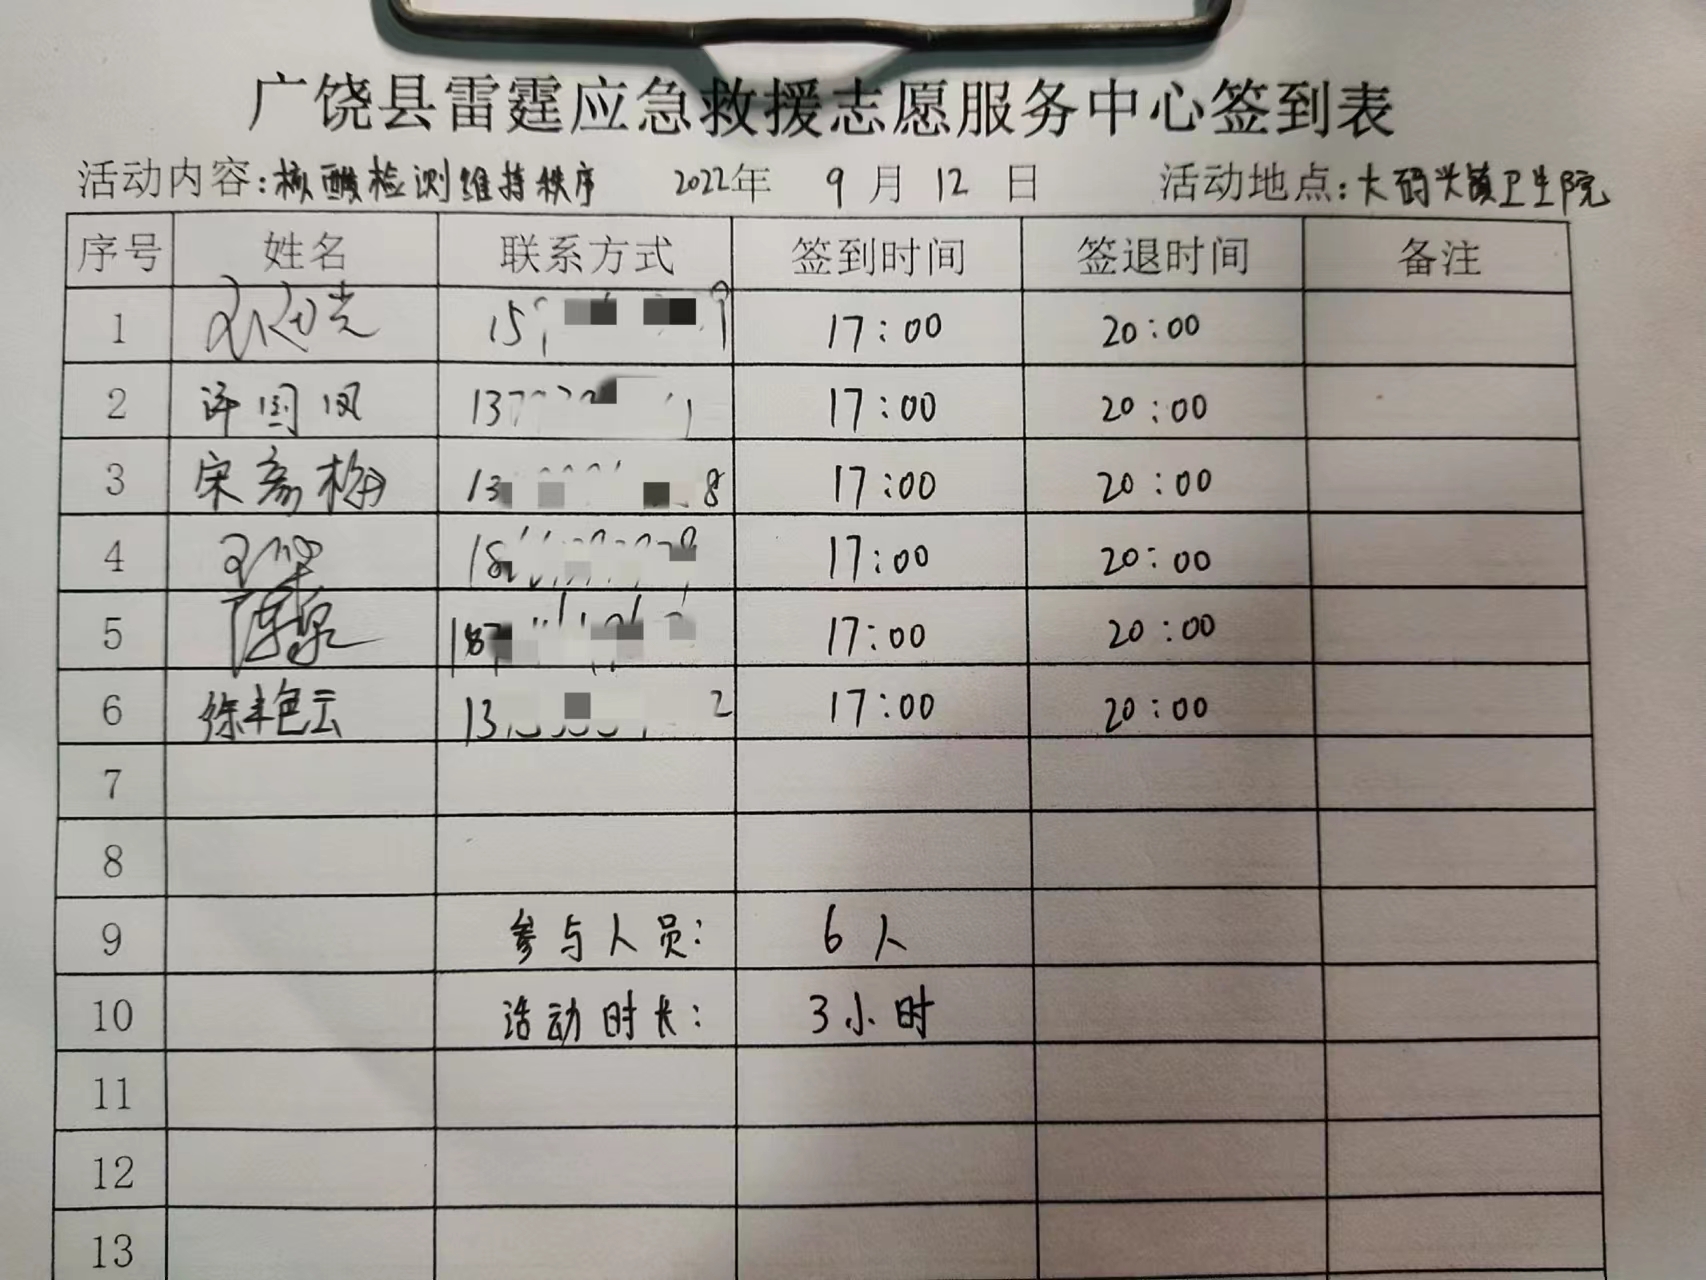 广饶县雷霆应急救援志愿服务中心签到表
活动内容:核酸检测维持秩序 2022年 9月12日 活动地点:大码头镇卫生院
序号 姓名 联系方式 签到时间 签退时间 备注
1 15 9 17:00 20:00
2 许国凤 137 17:00 20:00
3 宋彦梅 13 8 17:00 20:00
4 18 17:00 20:00
5 陈泉 187 17:00 20:00
6 徐艳云 13 2 17:00 20:00
7
8
9 参与人员: 6人
10 活动时长: 3小时
11
12
13